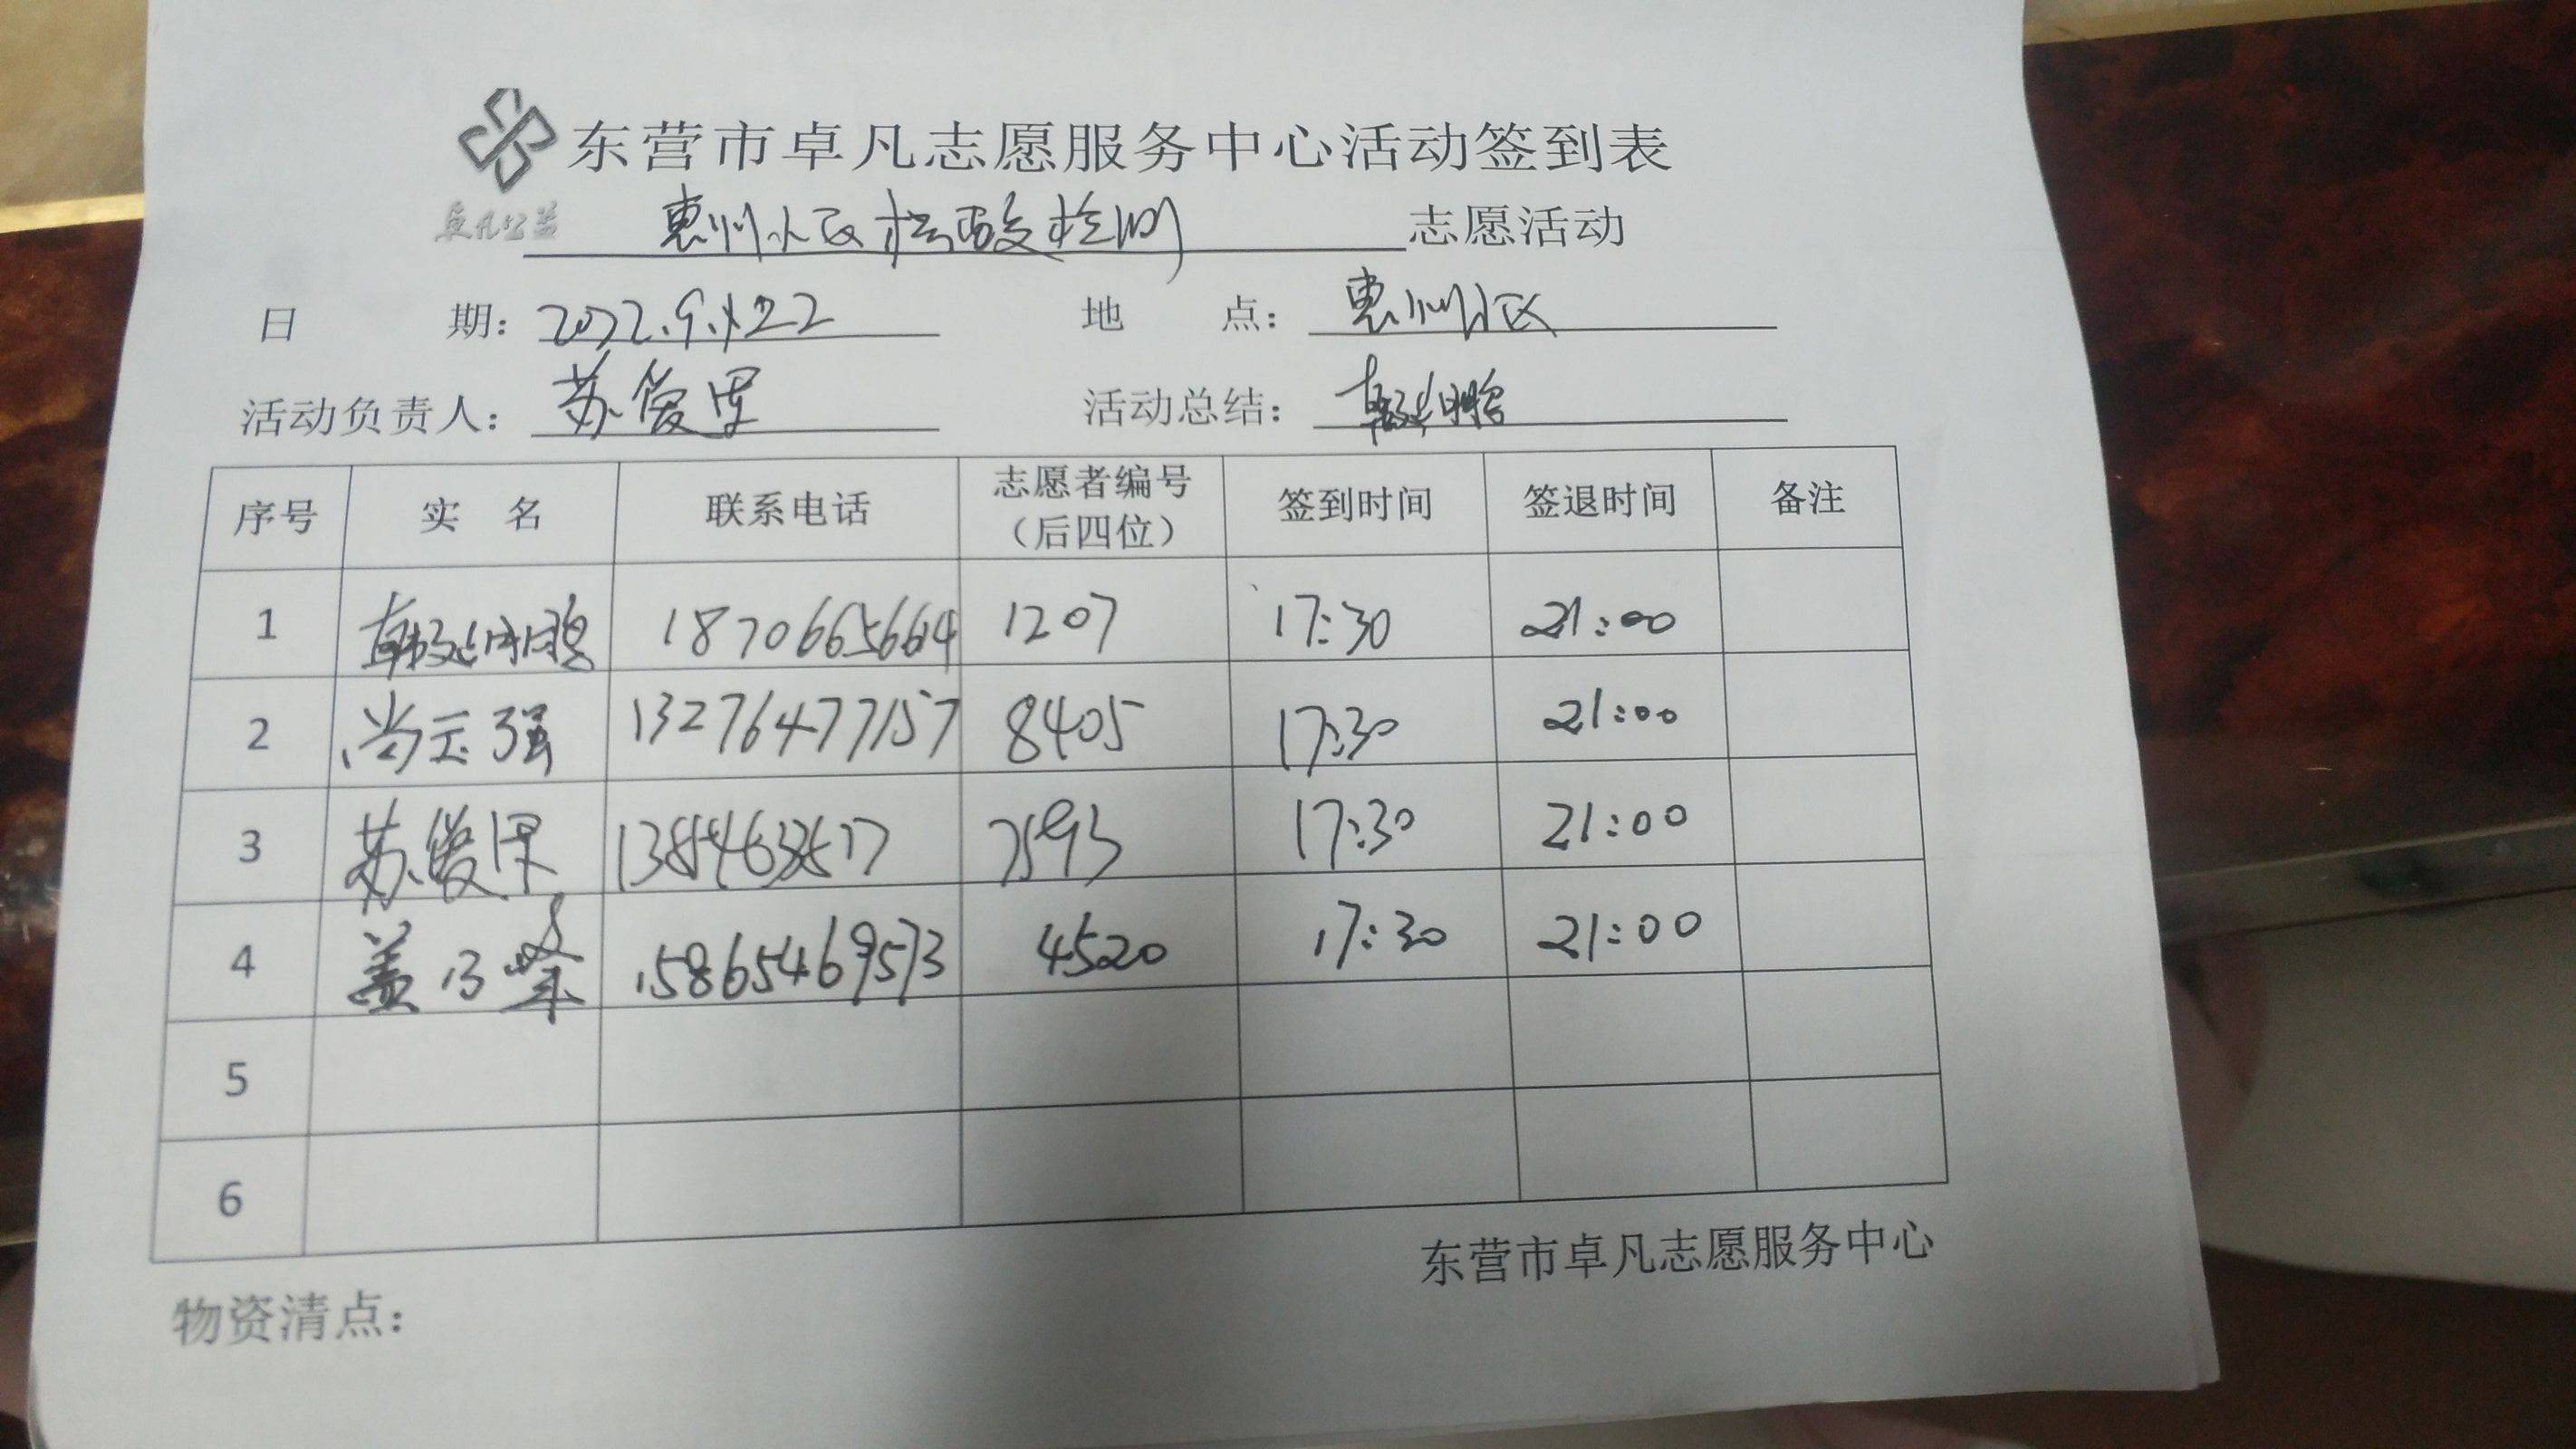 东营市卓凡志愿服务中心活动签到表
卓凡公益
惠州小区核酸检测 志愿活动
日 期: 2022.9.22 地 点: 惠州小区
活动负责人: 苏俊 活动总结: 韩延鹏
序号 实 名 联系电话 志愿者编号（后四位） 签到时间 签退时间 备注
1 韩延鹏 18706665664 1207 17:30 21:00
2 尚玉强 13276477157 8405 17:30 21:00
3 苏俊 7593 17:30 21:00
4 盖乃峰 15865469573 4520 17:30 21:00
5
6
东营市卓凡志愿服务中心
物资清点: